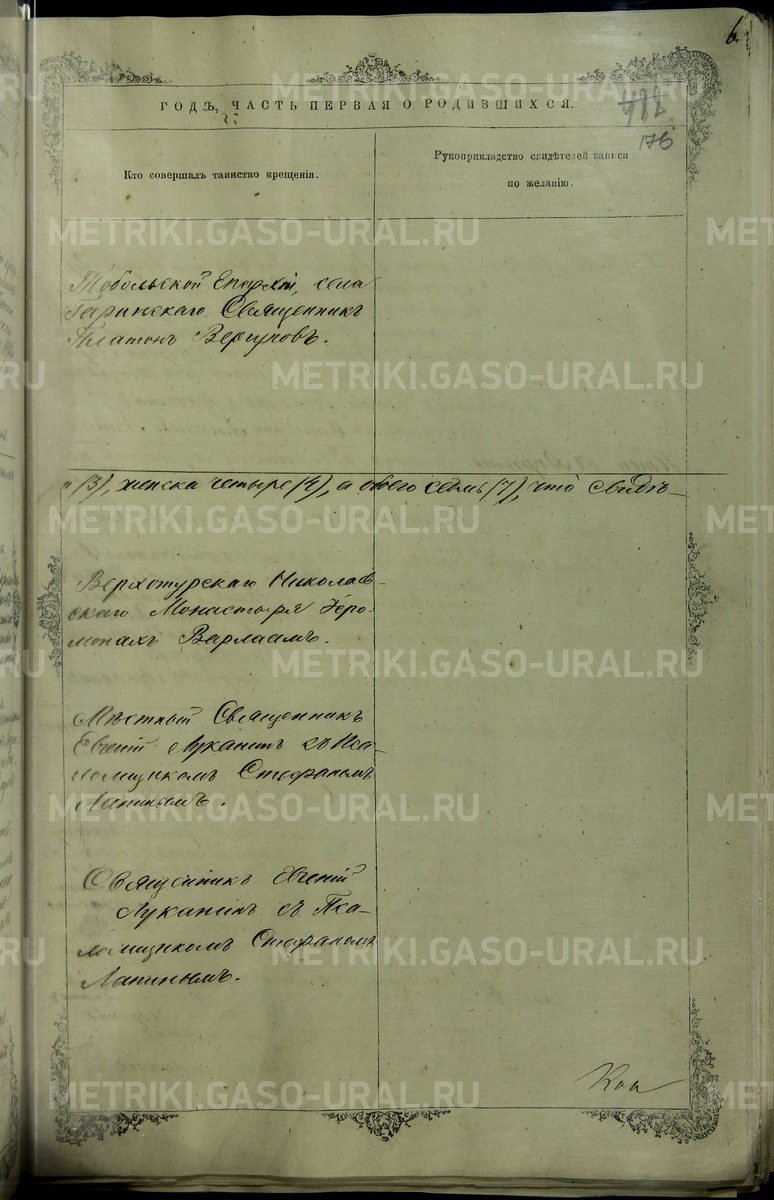 6.
ГОДЪ, ЧАСТЬ ПЕРВАЯ О РОДИВШИХСЯ.
176
Кто совершалъ таинство крещенія.
Рукоприкладство свидѣтелей записи
по желанію.
Тобольской Епархіи, села
Гаринскаго Священникъ
Платонъ Вергуновъ.
и (3), женска четыре (4), а обоего семь (7), что свидѣ-
Верхотурскаго Николаев-
скаго Монастыря Іеро-
монахъ Варлаамъ.
Мѣстный Священникъ
Евгеній Луканинъ съ Пса-
ломщикомъ Стефаномъ
Лапинымъ.
Священникъ Евгеній
Луканинъ съ Пса-
ломщикомъ Стефаномъ
Лапинымъ.
METRIKI.GASO-URAL.RU